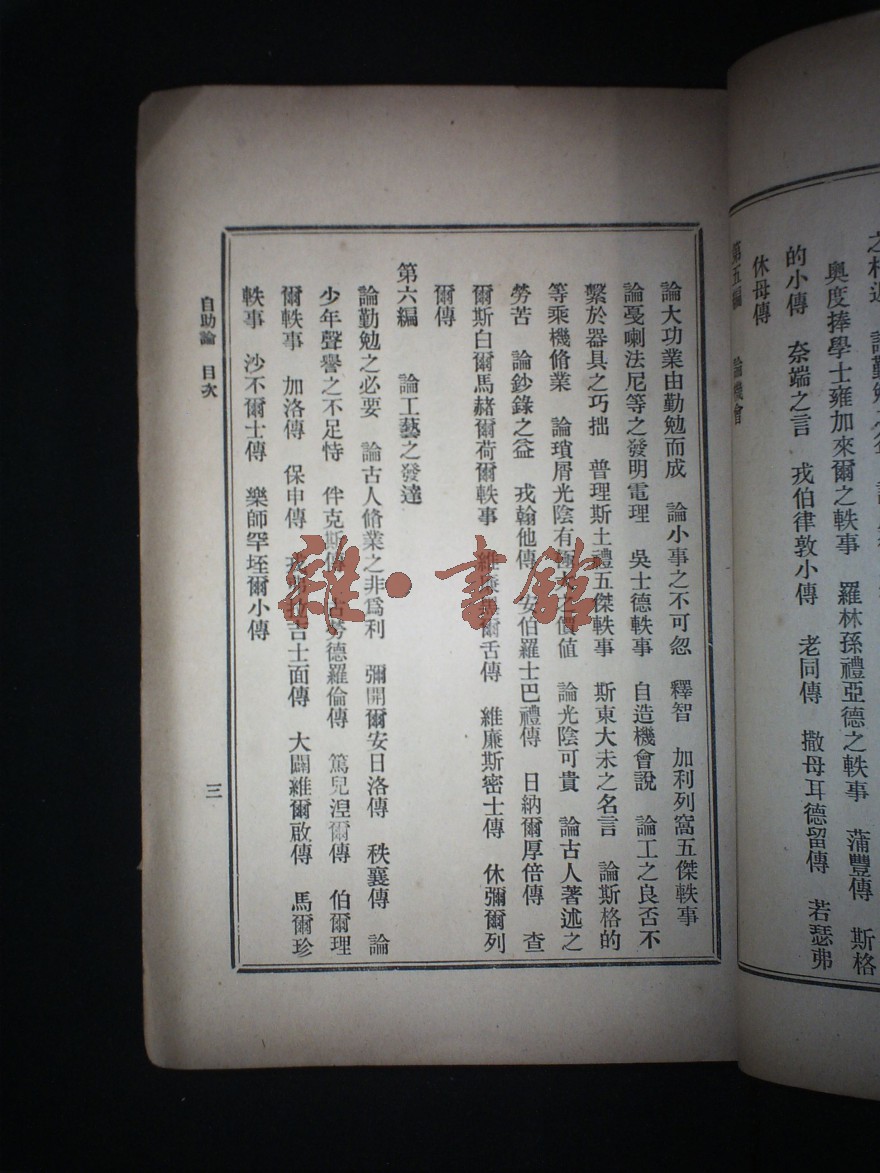 奧度捧學士雍加來爾之軼事　羅林孫禮亞德之軼事　蒲豐傳　斯格
的小傳　奈端之言　戎伯律敦小傳　老同傳　撒母耳德留傳　若瑟弗
休母傳
第五編　論機會
論大功業由勤勉而成　論小事之不可忽　釋智　加利列窩五傑軼事
論戞喇法尼等之發明電理　吳士德軼事　自造機會說　論工之良否不
繫於器具之巧拙　普理斯土禮五傑軼事　斯東大未之名言　論斯格的
等乘機脩業　論瑣屑光陰有極大之價値　論光陰可貴　論古人著述之
勞苦　論鈔錄之益　戎翰他傳　安伯羅士巴禮傳　日納爾厚倍傳　查
爾斯白爾馬赫爾荷爾軼事　維廉爾舌傳　維廉斯密士傳　休彌爾列
爾傳
第六編　論工藝之發達
論勤勉之必要　論古人脩業之非爲利　彌開爾安日洛傳　秩襄傳　論
少年聲譽之不足恃　伴克斯傳　古勞德羅倫傳　篤兒涅爾傳　伯爾理
爾軼事　加洛傳　保申傳　吉士面傳　大闢維爾啟傳　馬爾珍
軼事　沙不爾士傳　樂師罕垤爾小傳
自助論　目次
三
雜·書館